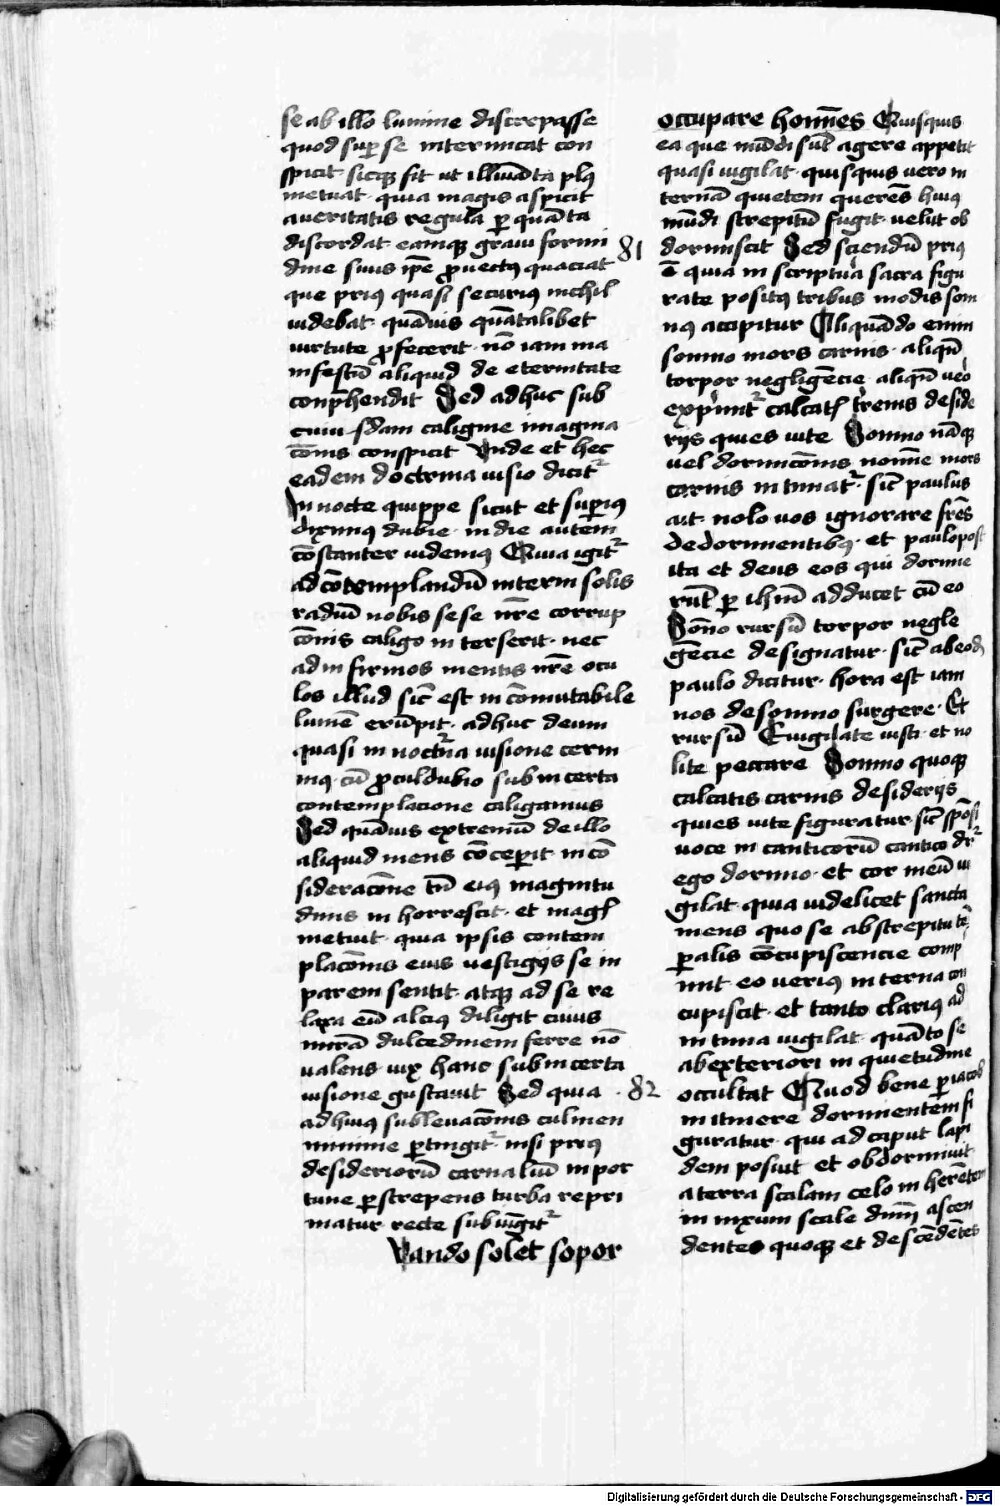 se ab illo lumine discrepasse
quod suꝑ se intermicat con
spicit sicqꝫ fit ut illumīata plꝰ
metuat · quia magis aspicit
a veritatis regula ꝑ quāta
discordat · eamqꝫ graui formi
dine suus ip̄e ꝓuectꝰ quaciat
que priꝰ quasi securiꝰ nichil
videbat · quāuis quātalibet
virtute ꝓfecerit · nō iam ma
nifestū aliquid de eternitate
conp̄hendit Sed adhuc sub
cuiusdam caligine imagina
cōnis conspicit Vnde et hec
eadem doctrina visio dicitᷣ
In nocte quippe sicut et suꝑiꝰ
diximꝰ dubie · in die autem
cōstanter videmꝰ Quia igitᷣ
ad cōtemplandū interni solis
radiū nobis sese nr̄e corrup
cōnis caligo interserit · nec
ad infirmos mentis nr̄e ocu
los illud sic̄ est incōmutabile
lumē erūpit · adhuc deum
quasi in nocturna visione cerni
mꝰ · cū ꝓculdubio sub incerta
contemplacione caligamus
Sed quāuis extremū de illo
aliquid mens cōceꝑit · in cō
sideracōne tn̄ eiꝰ magnitu
dinis inhorrescit · et magꝭ
metuit · quia ipsis contem
placōnis eius vestigijs se in
parem sentit · atqꝫ ad se re
laxa eū alciꝰ diligit cuius
mirā dulcedinem ferre nō
valens vix hanc sub incerta
visione gustauit Sed quia · 82
ad huiꝰ subleuacōnis culmen
minime ꝑtingitᷣ · nisi priꝰ
desideriorū carnaliū inpor
tune ꝑstrepens turba repri
matur recte subiūgitᷣ
Quando solet sopor
occupare homīes Quisquis
ea que mūdi sūt agere appetit
quasi vigilat · quisquis vero in
ternā quietem querēs huiꝰ
mūdi strepitū fugit · velut ob
81 dormiscit Sed sciendū priꝰ
ē quia in scriptura sacra figu
rate positꝰ tribus modis som
nꝰ accipitur Aliquādo enim
somno mors carnis · aliqn̄
torpor negligēcie · aliqn̄ vero
exprimitᷣ calcatꝭ terrenis deside
rijs quies vite Somno nāqꝫ
vel dormicōnis nomīe mors
carnis intimatᷣ · sic̄ paulus
ait · nolo vos ignorare fr̄es
de dormientibꝫ · et paulopost
ita et deus eos qui dormie
rūt ꝑ ih̄m adducet cū eo
Sōno rursū torpor negle
gecie designatur · sic̄ ab eod̄
paulo dicitur · hora est iam
nos de somno surgere · Et
rursū Euigilate iusti · et no
lite peccare Somno quoqꝫ
calcatis carnis desiderijs
quies vite figuratur · sic̄ sponsi
voce in canticorū cantico dr̄
ego dormio · et cor meū vi
gilat · quia videlicet sancta
mens quo se ab strepitu tē
ꝑalis cōcupiscencie comp
mit · eo veriꝰ interna con
cupiscit · et tanto clariꝰ ad
intima vigilat · quāto se
ab exteriori inquietudine
occultat Quod bene ꝑ iacob
in itinere dormientem fi
guratur · qui ad caput lapi
dem posuit et obdormiuit
a terra scalam celo inherētem
innixum scale dnm̄ ascen
dentes quoqꝫ et descēdētes
Digitalisierung gefördert durch die Deutsche Forschungsgemeinschaft - DFG